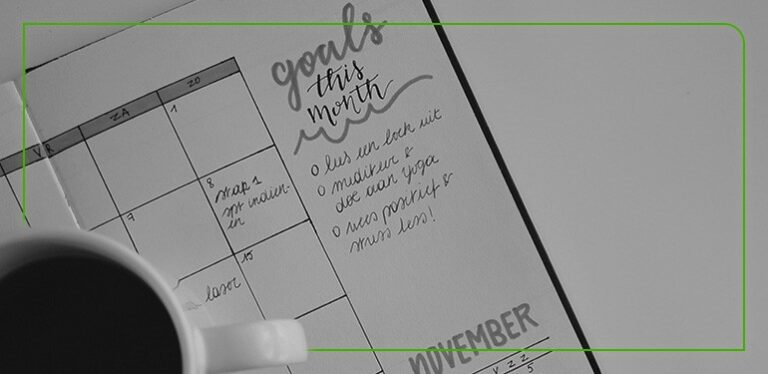 goals
this
month
VR ZA ZO
1
o lees een boek uit
o mediteer &
doe aan yoga
o wees positief &
stress less!
7
8
stap 1
indien-
en
15
laser
NOVEMBER
V Z Z
5